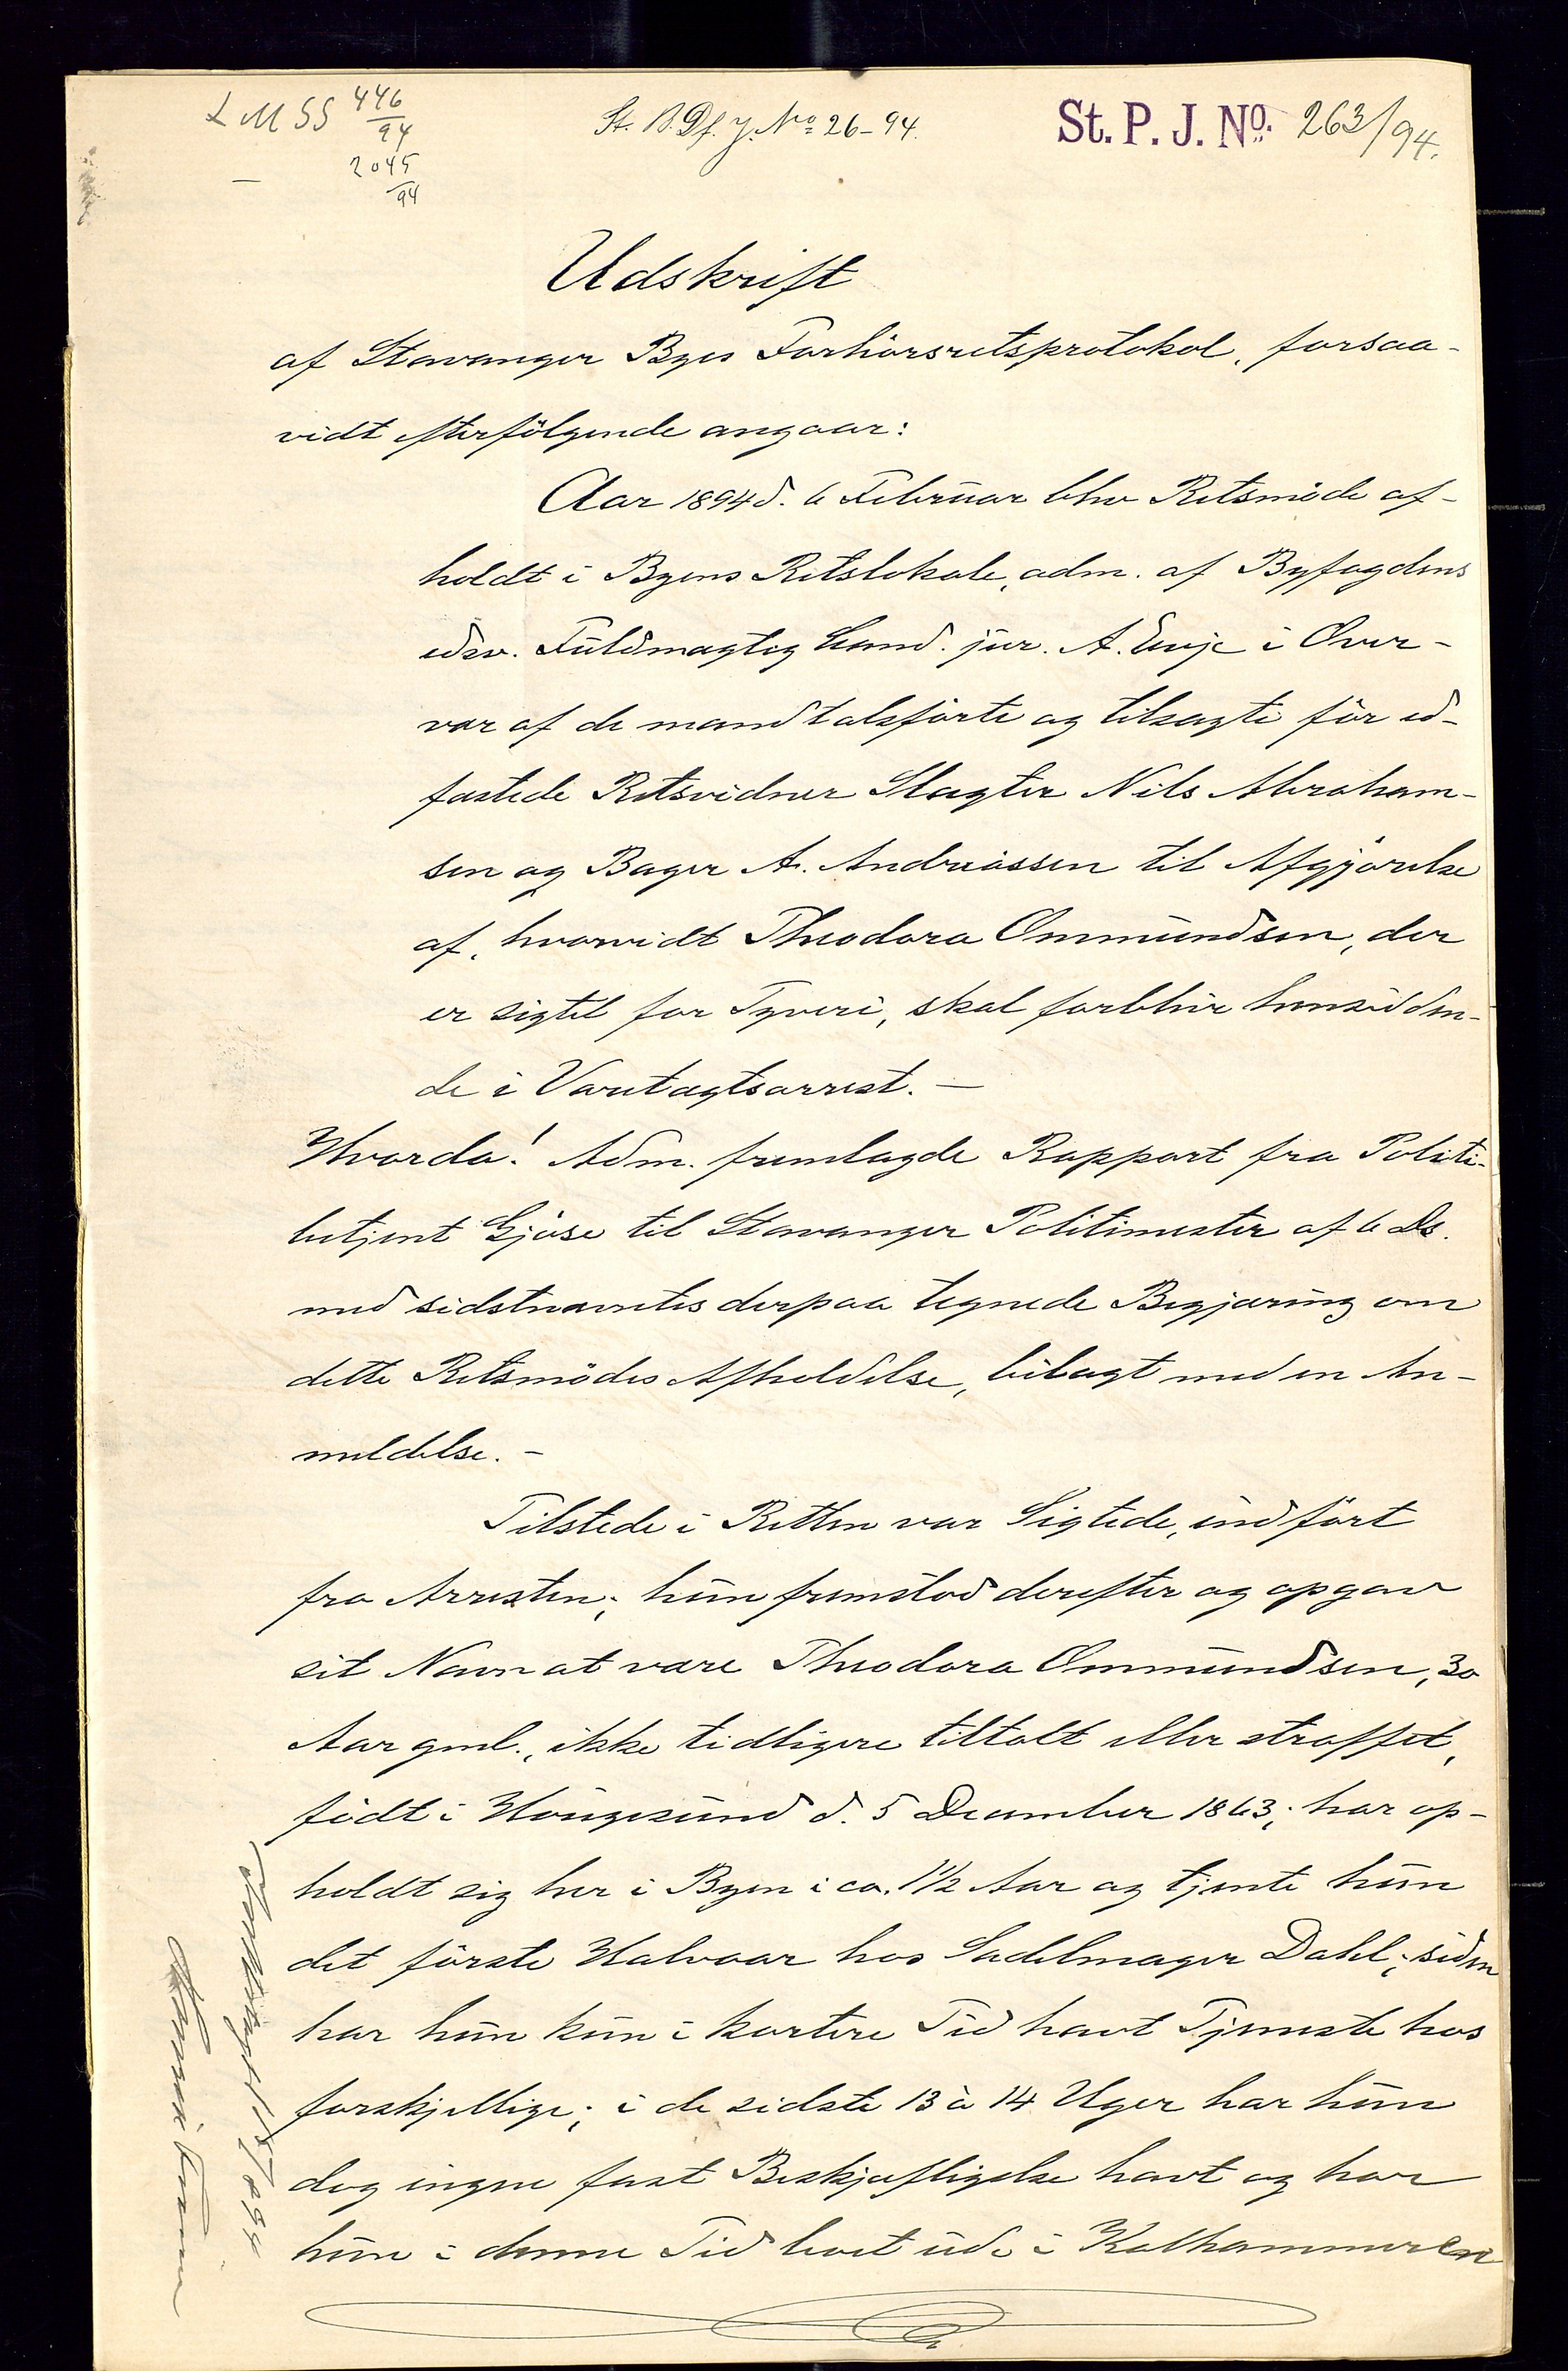 L M SS 446/94
2045/94
St. B. Df. J. No 26-94.
St. P. J. No. 263/94.
Udskrift
af Stavanger Byes Forhørsretsprotokol, forsaa-
vidt efterfølgende angaar:
Aar 1894 d. 6 Februar blev Retsmøde af-
holdt i Byens Retslokale, adm. af Byfogdens
edsv. Fuldmægtig Cand. jur. A. Euje i Over-
vær af de mandtalsførte og tilsagte før ed-
fæstede Retsvidner Slagter Nils Abraham-
sen og Bager A. Andreassen til Afgjørelse
af, hvorvidt Theodora Ommundsen, der
er sigtet for Tyveri, skal forblive hensidden-
de i Varetægtsarrest. —
Hvorda! Adm. fremlagde Rapport fra Politi-
betjent Gjøse til Stavanger Politimester af 6 Ds.
med sidstnævntes derpaa tegnede Begjæring om
dette Retsmødes Afholdelse, bilagt med en An-
meldelse. —
Tilstede i Retten var Sigtede, indført
fra Arresten; hun fremstod derefter og opgav
sit Navn at være Theodora Ommundsen, 30
Aar gml., ikke tidligere tiltalt eller straffet,
født i Haugesund d. 5 December 1863; har op-
holdt sig her i Byen i ca. 1 1/2 Aar og tjente hun
det første Halvaar hos Sadelmager Dahl; siden
har hun kun i kortere Tid havt Tjeneste hos
forskjellige; i de sidste 13 à 14 Uger har hun
dog ingen fast Beskjæftigelse havt og har
hun i denne Tid boet ude i Kalhammeren